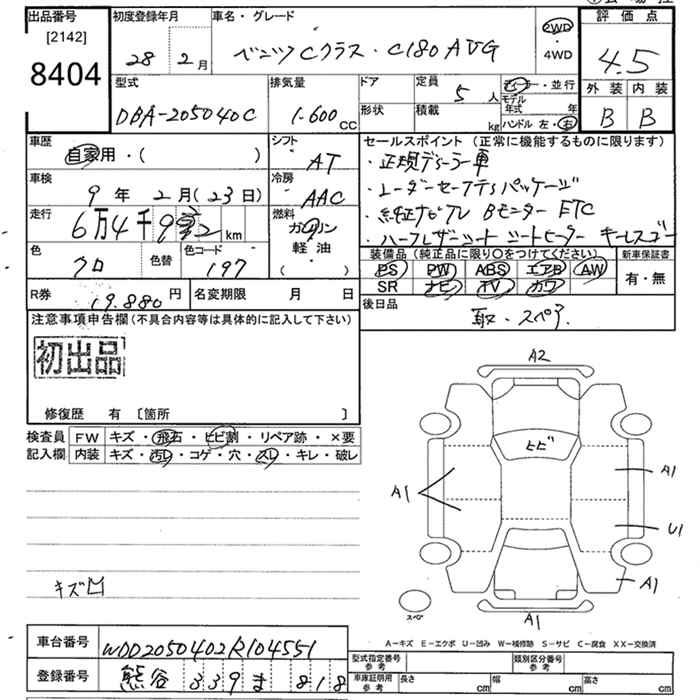 出品番号 初度登録年月 車名・グレード 2WD・4WD 評価点
[2142]
8404 28年 2月 ベンツCクラス・C180 AVG 4.5
型式 排気量 ドア 定員 5人 ディーラー・並行 外装 内装
DBA-205040C 1-600cc 形状 積載 kg モデル年式 年 ハンドル 左・右 B B
車歴 自家用・( ) シフト AT セールスポイント(正常に機能するものに限ります)
・正規ディーラー車
車検 9年 2月(23日) 冷房 AAC ・レーダーセーフティパッケージ
走行 6万4千9百 2 km 燃料 ガソリン ・純正ナビTV Bモニター ETC
軽・油 ・ハーフレザーシート シートヒーター キーレスゴー
色 クロ 色替 色コード 197 ( ) 装備品(純正品に限り○をつけてください) 新車保証書
PS PW ABS エアB AW 有・無
R券 19.880円 名変期限 月 日 SR ナビ TV カワ
注意事項申告欄(不具合内容等は具体的に記入して下さい) 後日品
取・スペア
初出品
修復歴 有 [箇所 ]
検査員 FW キズ・飛石・ヒビ割・リペア跡・×要
記入欄 内装 キズ・汚レ・コゲ・穴・スレ・キレ・破レ
A2
ヒビ
A1 A1
U1
A1
キズ凹 スペア A1
車台番号 WDD2050402R104551 A-キズ E-エクボ U-凹み W-補修跡 S-サビ C-腐食 XX-交換済
型式指定番号 参考 類別区分番号 参考
登録番号 熊谷 339 ま 818 車庫証明用 参考 長さ cm 幅 cm 高さ cm